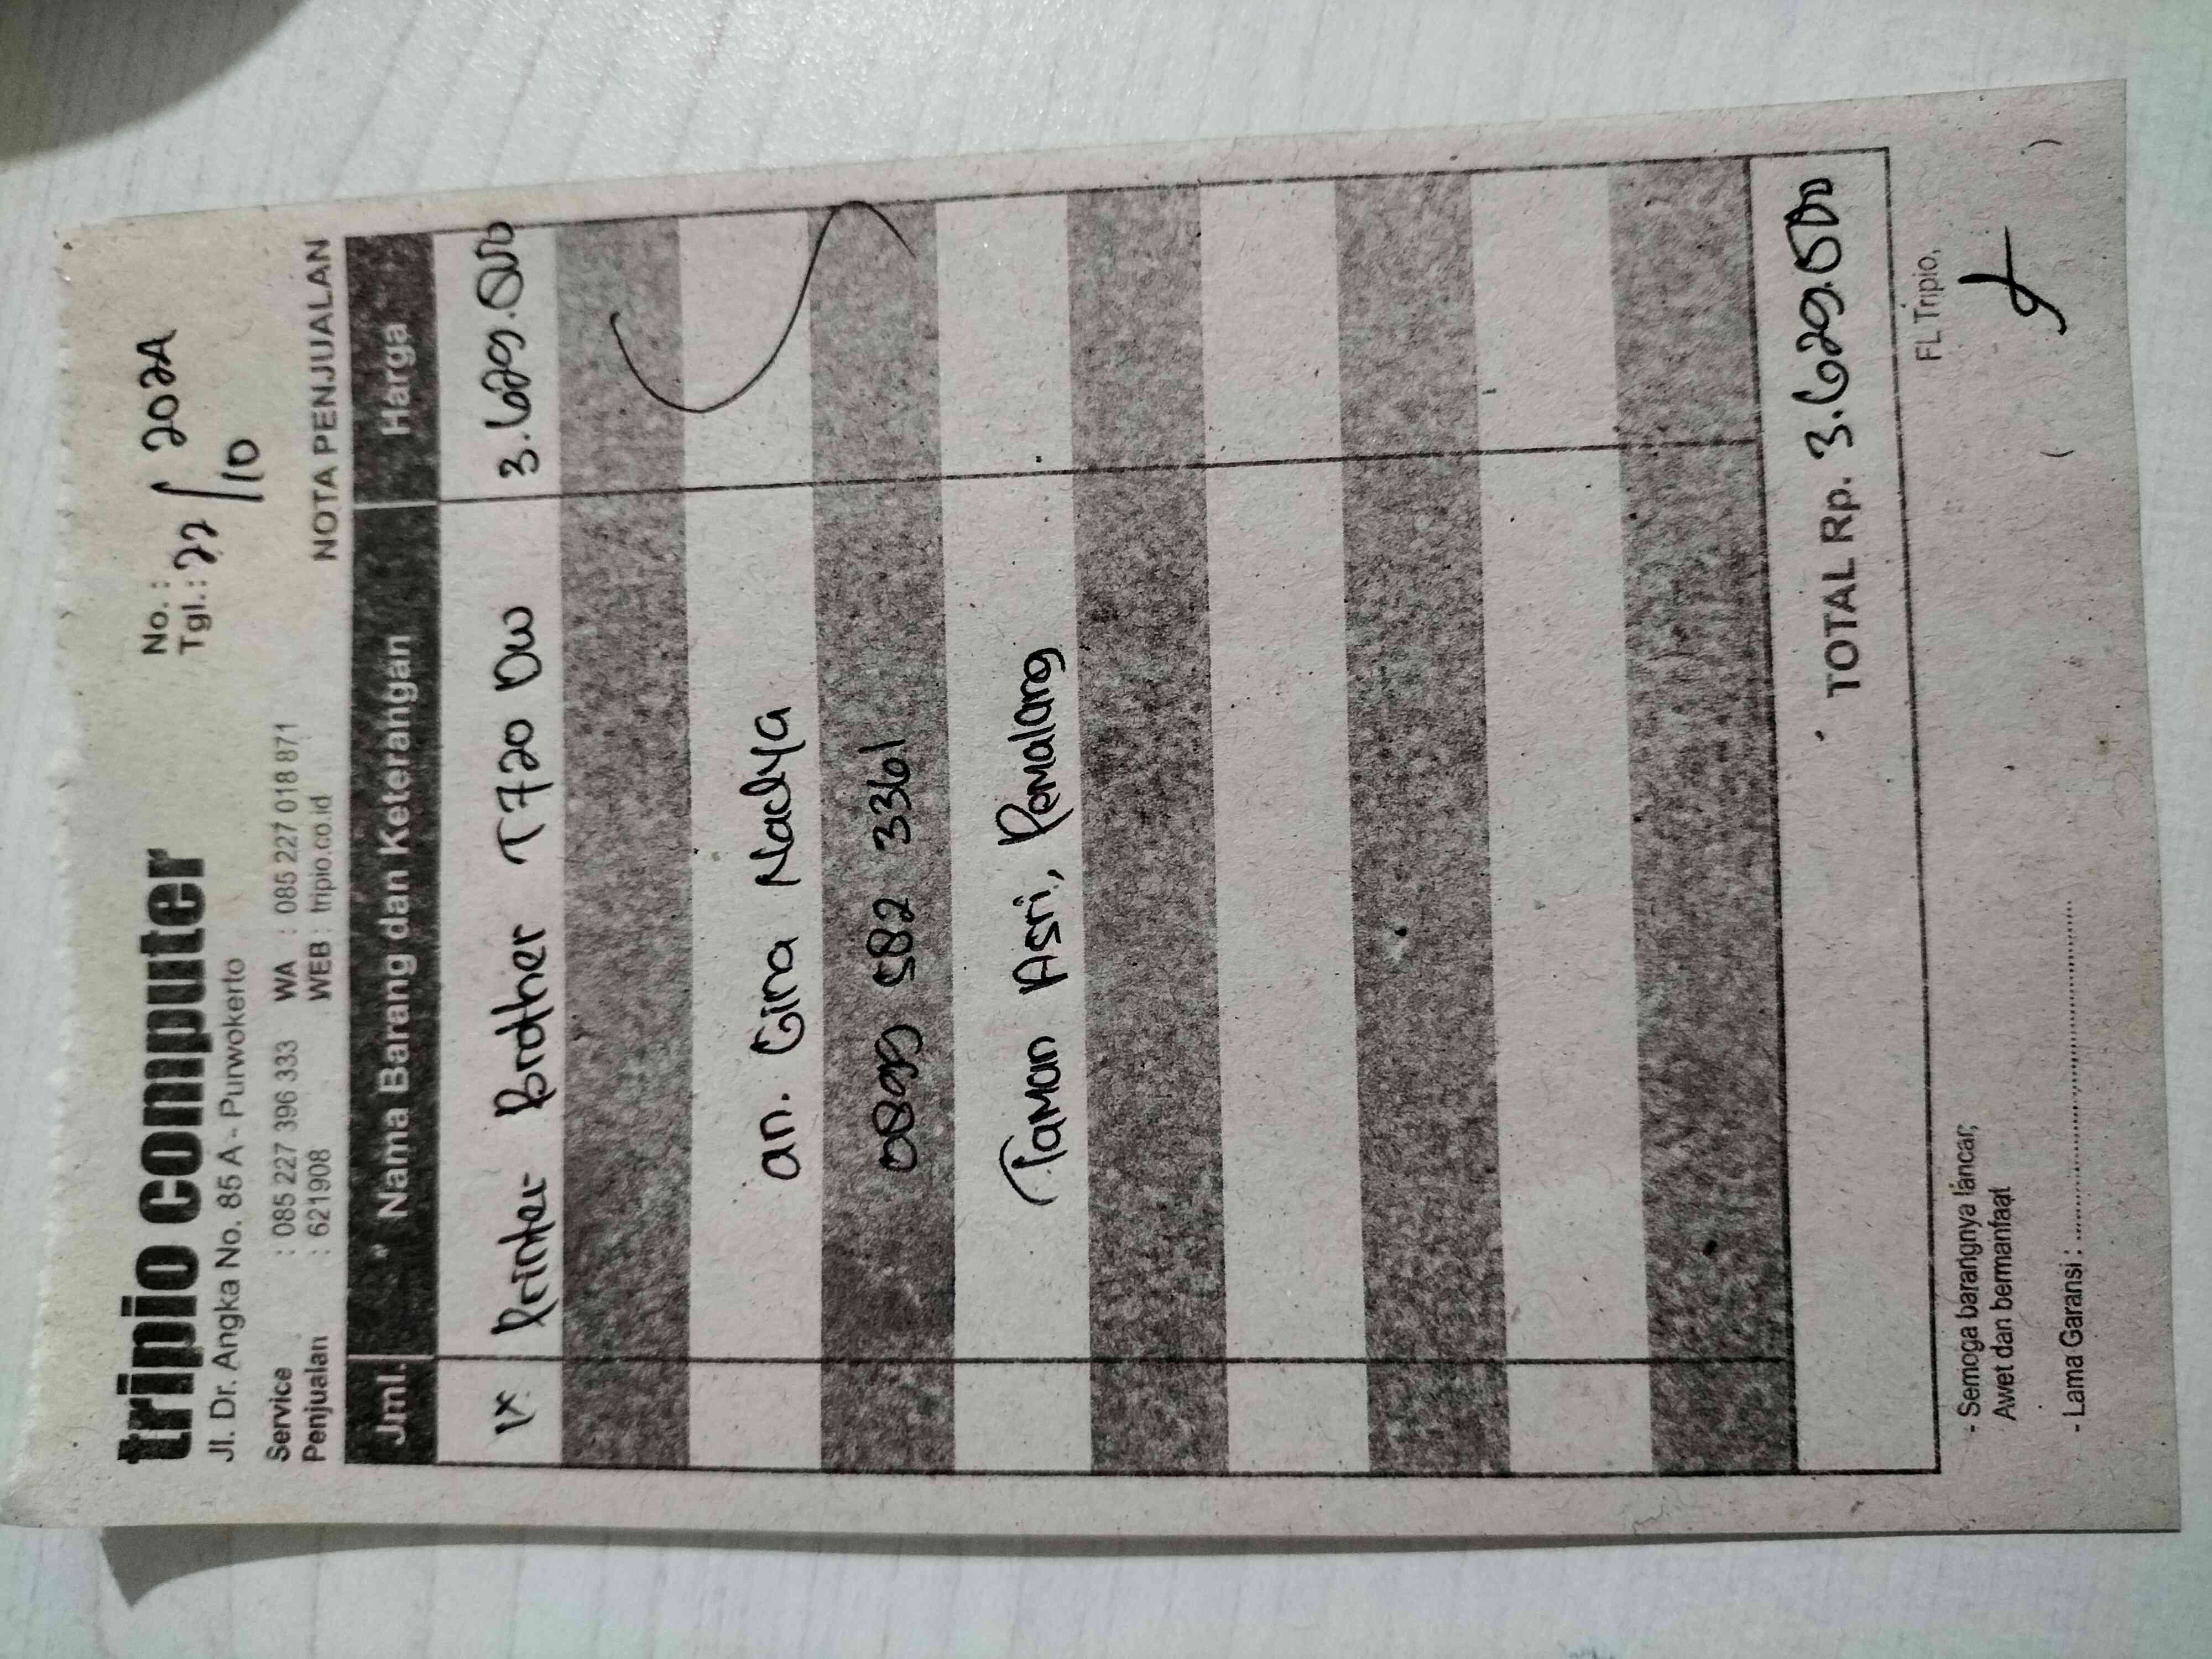 tripio computer
Jl. Dr. Angka No. 85 A - Purwokerto
Service : 085 227 396 333 WA : 085 227 018 871
Penjualan : 621908 WEB : tripio.co.id
No. :
Tgl. : 22/10 2024
NOTA PENJUALAN
Jml. Nama Barang dan Keterangan Harga
1x Printer Brother T720 DW 3.629.000
an. Gina Nadya
0899 582 3361
Taman Asri, Pemalang
TOTAL Rp. 3.629.000
- Semoga barangnya lancar,
Awet dan bermanfaat
- Lama Garansi : ........................
FL Tripio,
( )